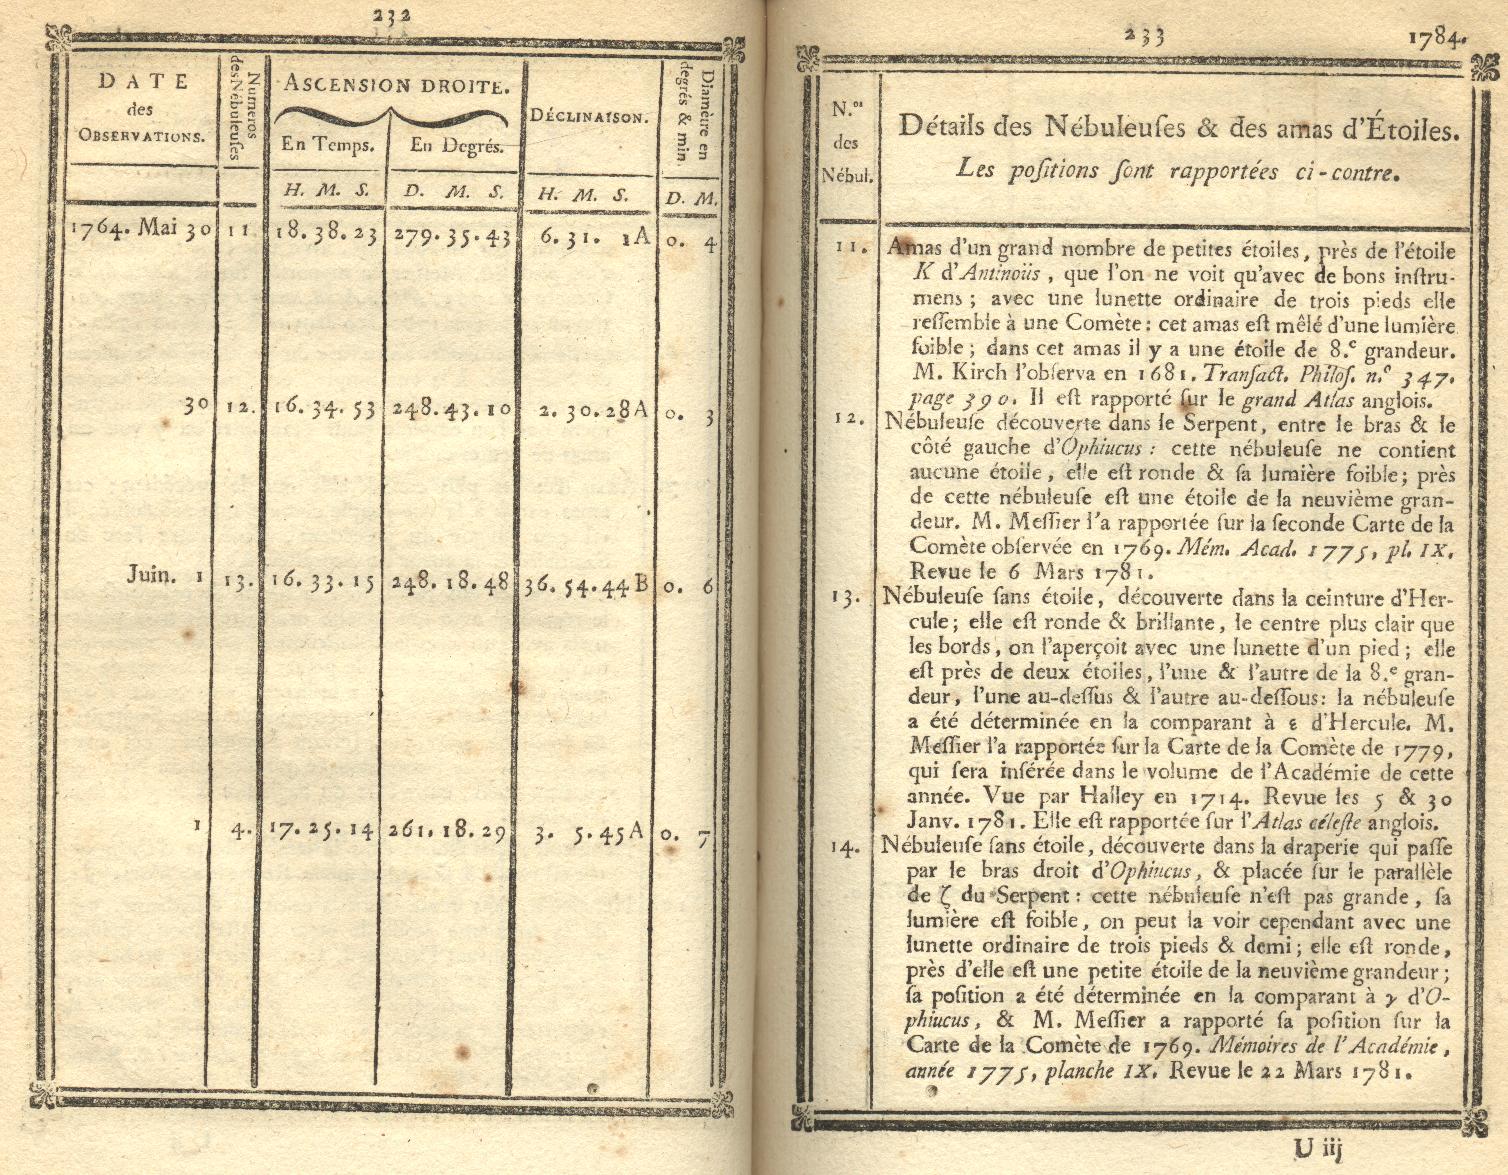 232
DATE
des
OBSERVATIONS.
Numeros
des Nébuleuſes
ASCENSION DROITE.
En Temps. En Degrés.
DÉCLINAISON.
Diamètre en
degrés & min.
H. M. S. D. M. S. H. M. S. D. M.
1764. Mai 30 11 18. 38. 23 279. 35. 43 6. 31. 1A 0. 4
30 12. 16. 34. 53 248. 43. 10 2. 30. 28A 0. 3
Juin. 1 13. 16. 33. 15 248. 18. 48 36. 54. 44B 0. 6
1 4. 17. 25. 14 261. 18. 29 3. 5. 45A 0. 7
233 1784.
N.os
des
Nébul.
Détails des Nébuleuſes & des amas d'Étoiles.
Les poſitions ſont rapportées ci-contre.
11. Amas d'un grand nombre de petites étoiles, près de l'étoile
K d'Antinoüs, que l'on ne voit qu'avec de bons inſtru-
mens; avec une lunette ordinaire de trois pieds elle
reſſemble à une Comète: cet amas eſt mêlé d'une lumière
foible; dans cet amas il y a une étoile de 8.e grandeur.
M. Kirch l'obſerva en 1681. Tranſact. Philoſ. n.o 347.
page 390. Il eſt rapporté ſur le grand Atlas anglois.
12. Nébuleuſe découverte dans le Serpent, entre le bras & le
côté gauche d'Ophiucus: cette nébuleuſe ne contient
aucune étoile, elle eſt ronde & ſa lumière foible; près
de cette nébuleuſe eſt une étoile de la neuvième gran-
deur. M. Meſſier l'a rapportée ſur la ſeconde Carte de la
Comète obſervée en 1769. Mém. Acad. 1775, pl. IX.
Revue le 6 Mars 1781.
13. Nébuleuſe ſans étoile, découverte dans la ceinture d'Her-
cule; elle eſt ronde & brillante, le centre plus clair que
les bords, on l'aperçoit avec une lunette d'un pied; elle
eſt près de deux étoiles, l'une & l'autre de la 8.e gran-
deur, l'une au-deſſus & l'autre au-deſſous: la nébuleuſe
a été déterminée en la comparant à ε d'Hercule. M.
Meſſier l'a rapportée ſur la Carte de la Comète de 1779,
qui ſera inſérée dans le volume de l'Académie de cette
année. Vue par Halley en 1714. Revue les 5 & 30
Janv. 1781. Elle eſt rapportée ſur l'Atlas céleſte anglois.
14. Nébuleuſe ſans étoile, découverte dans la draperie qui paſſe
par le bras droit d'Ophiucus, & placée ſur le parallèle
de ζ du Serpent: cette nébuleuſe n'eſt pas grande, ſa
lumière eſt foible, on peut la voir cependant avec une
lunette ordinaire de trois pieds & demi; elle eſt ronde,
près d'elle eſt une petite étoile de la neuvième grandeur;
ſa poſition a été déterminée en la comparant à γ d'O-
phiucus, & M. Meſſier a rapporté ſa poſition ſur la
Carte de la Comète de 1769. Mémoires de l'Académie,
année 1775, planche IX. Revue le 22 Mars 1781.
U iij